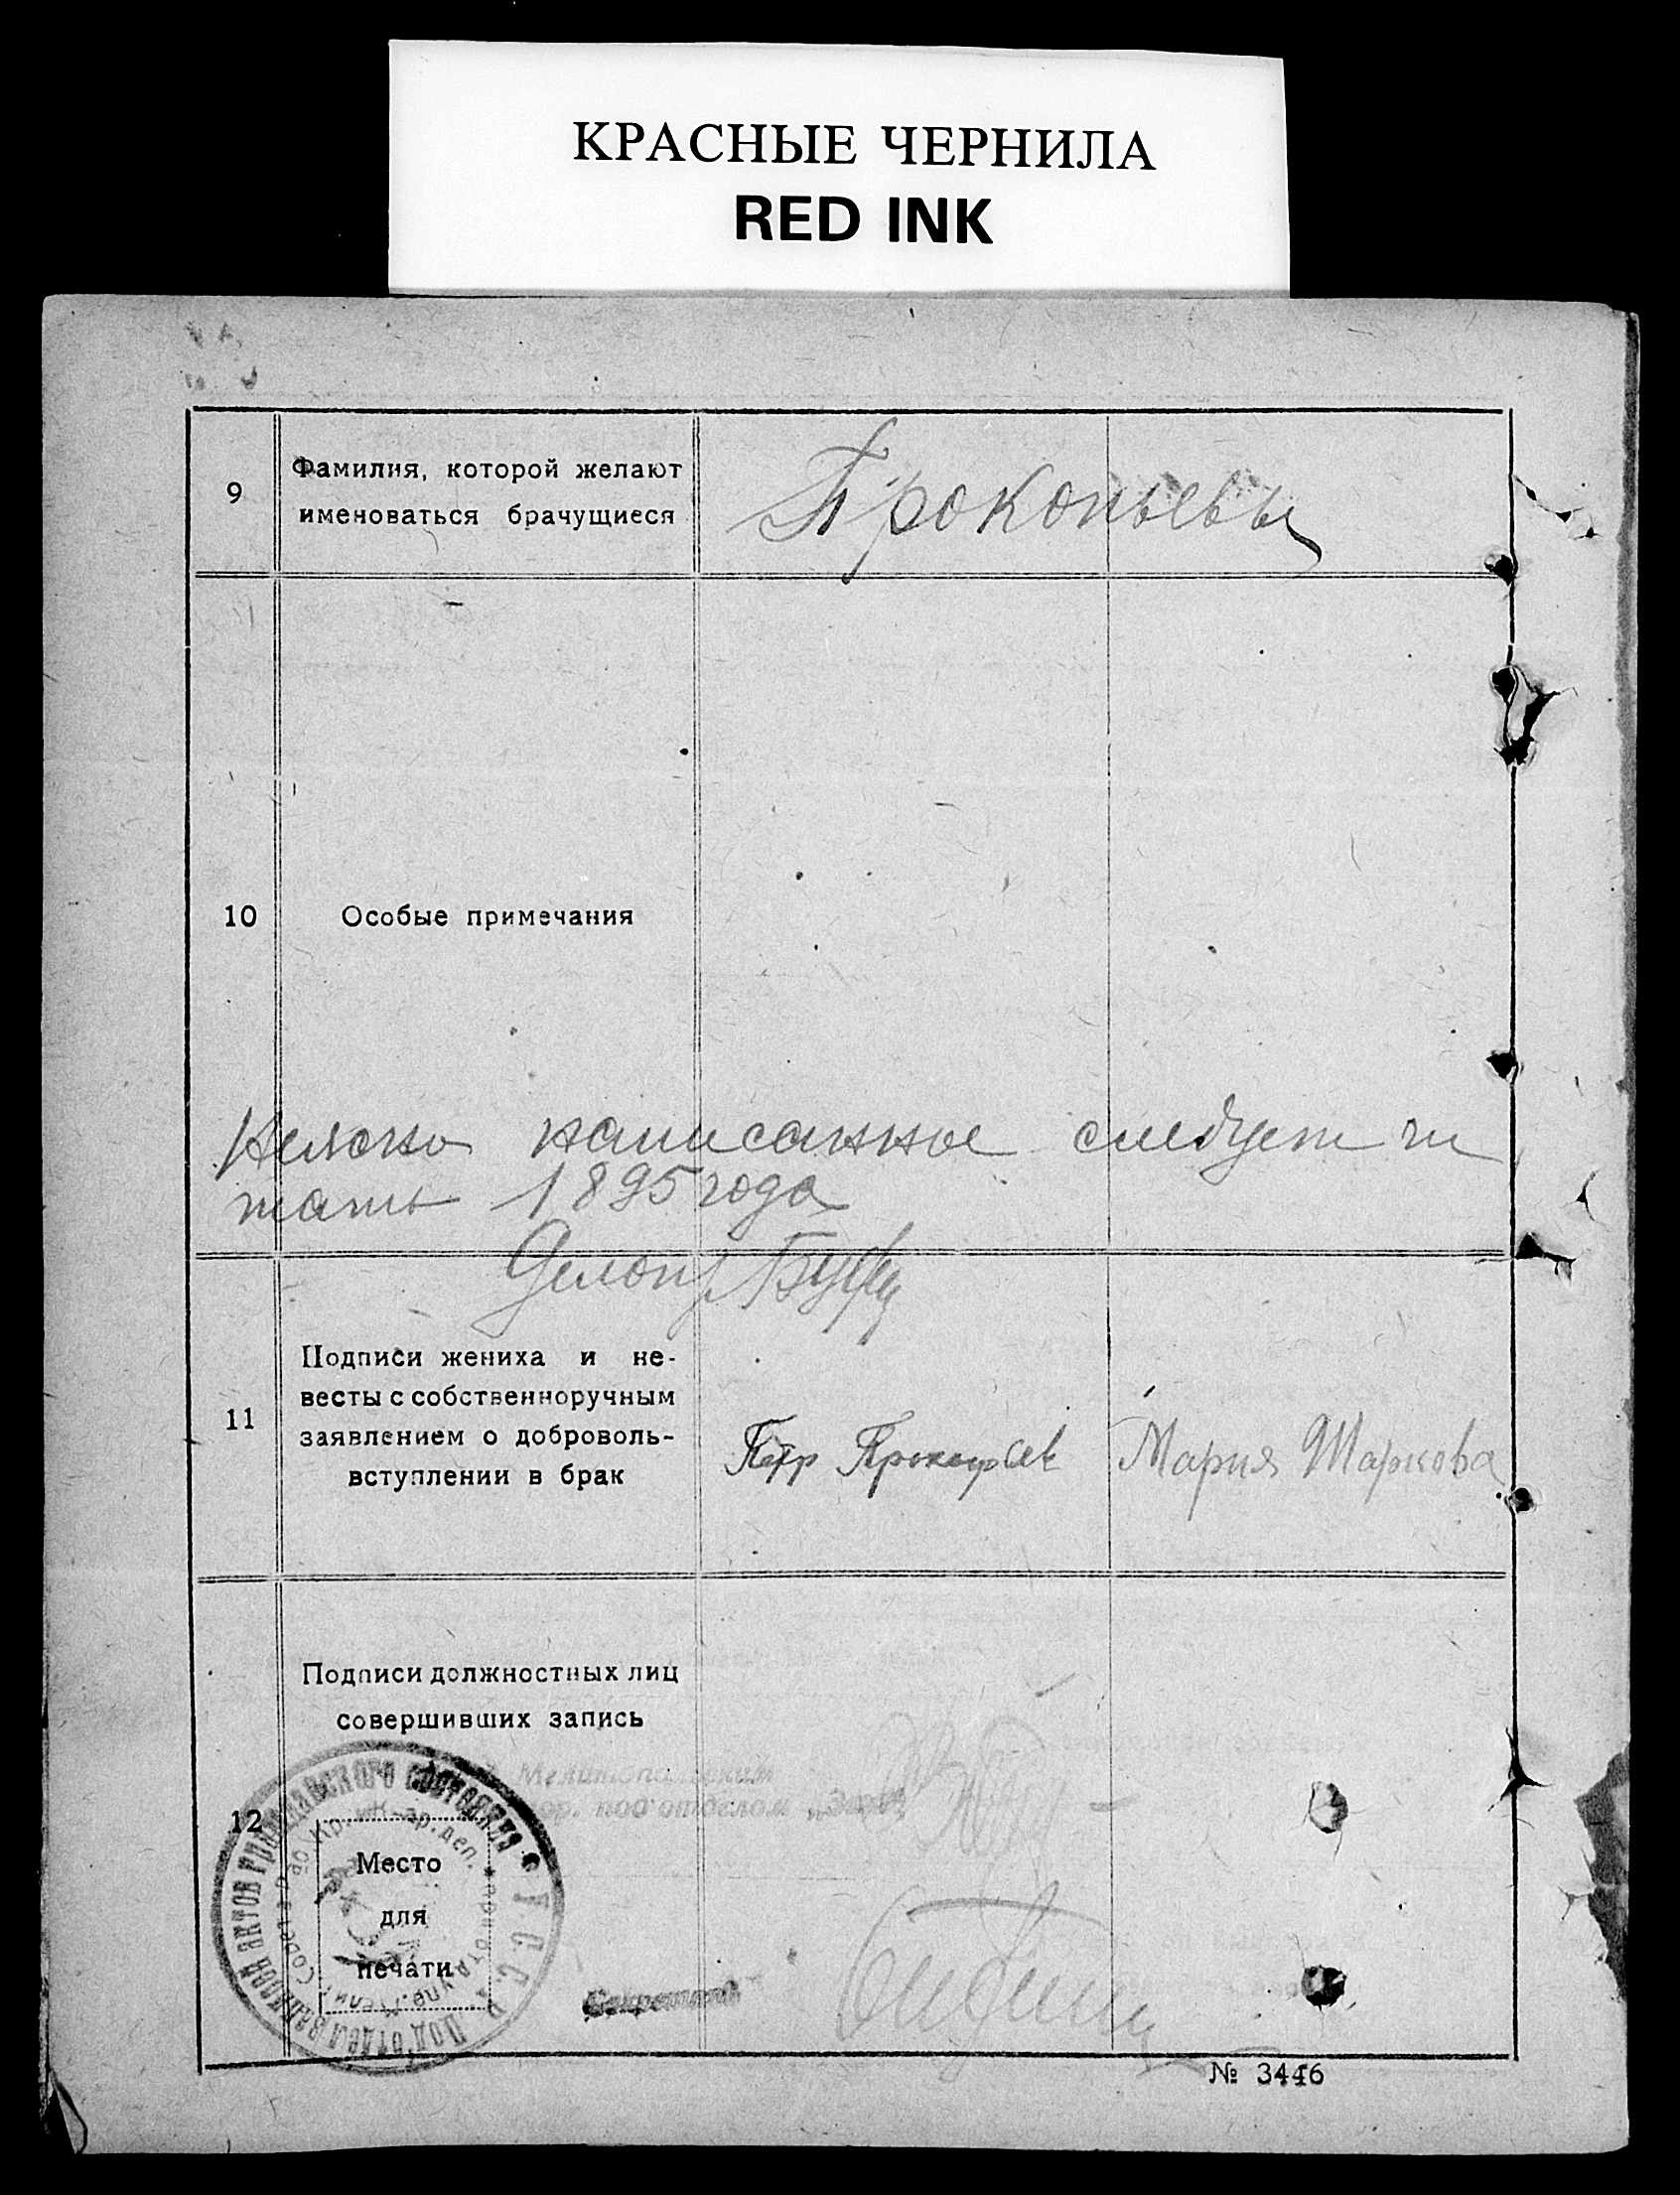 КРАСНЫЕ ЧЕРНИЛА
RED INK
9
Фамилия, которой желают
именоваться брачущиеся
Прокопьевы
10
Особые примечания
Неясно написанное следует чи
тать 1895 года
Делопр
11
Подписи жениха и не-
весты с собственноручным
заявлением о доброволь-
вступлении в брак
Петр Прокопьев
Мария Шаркова
12
Подписи должностных лиц
совершивших запись
Мелитопольским
под'отделом
Место
для
печати
Секретарь
Под'отдел записей актов гражданского состояния
У.С.С.Р.
№ 3446